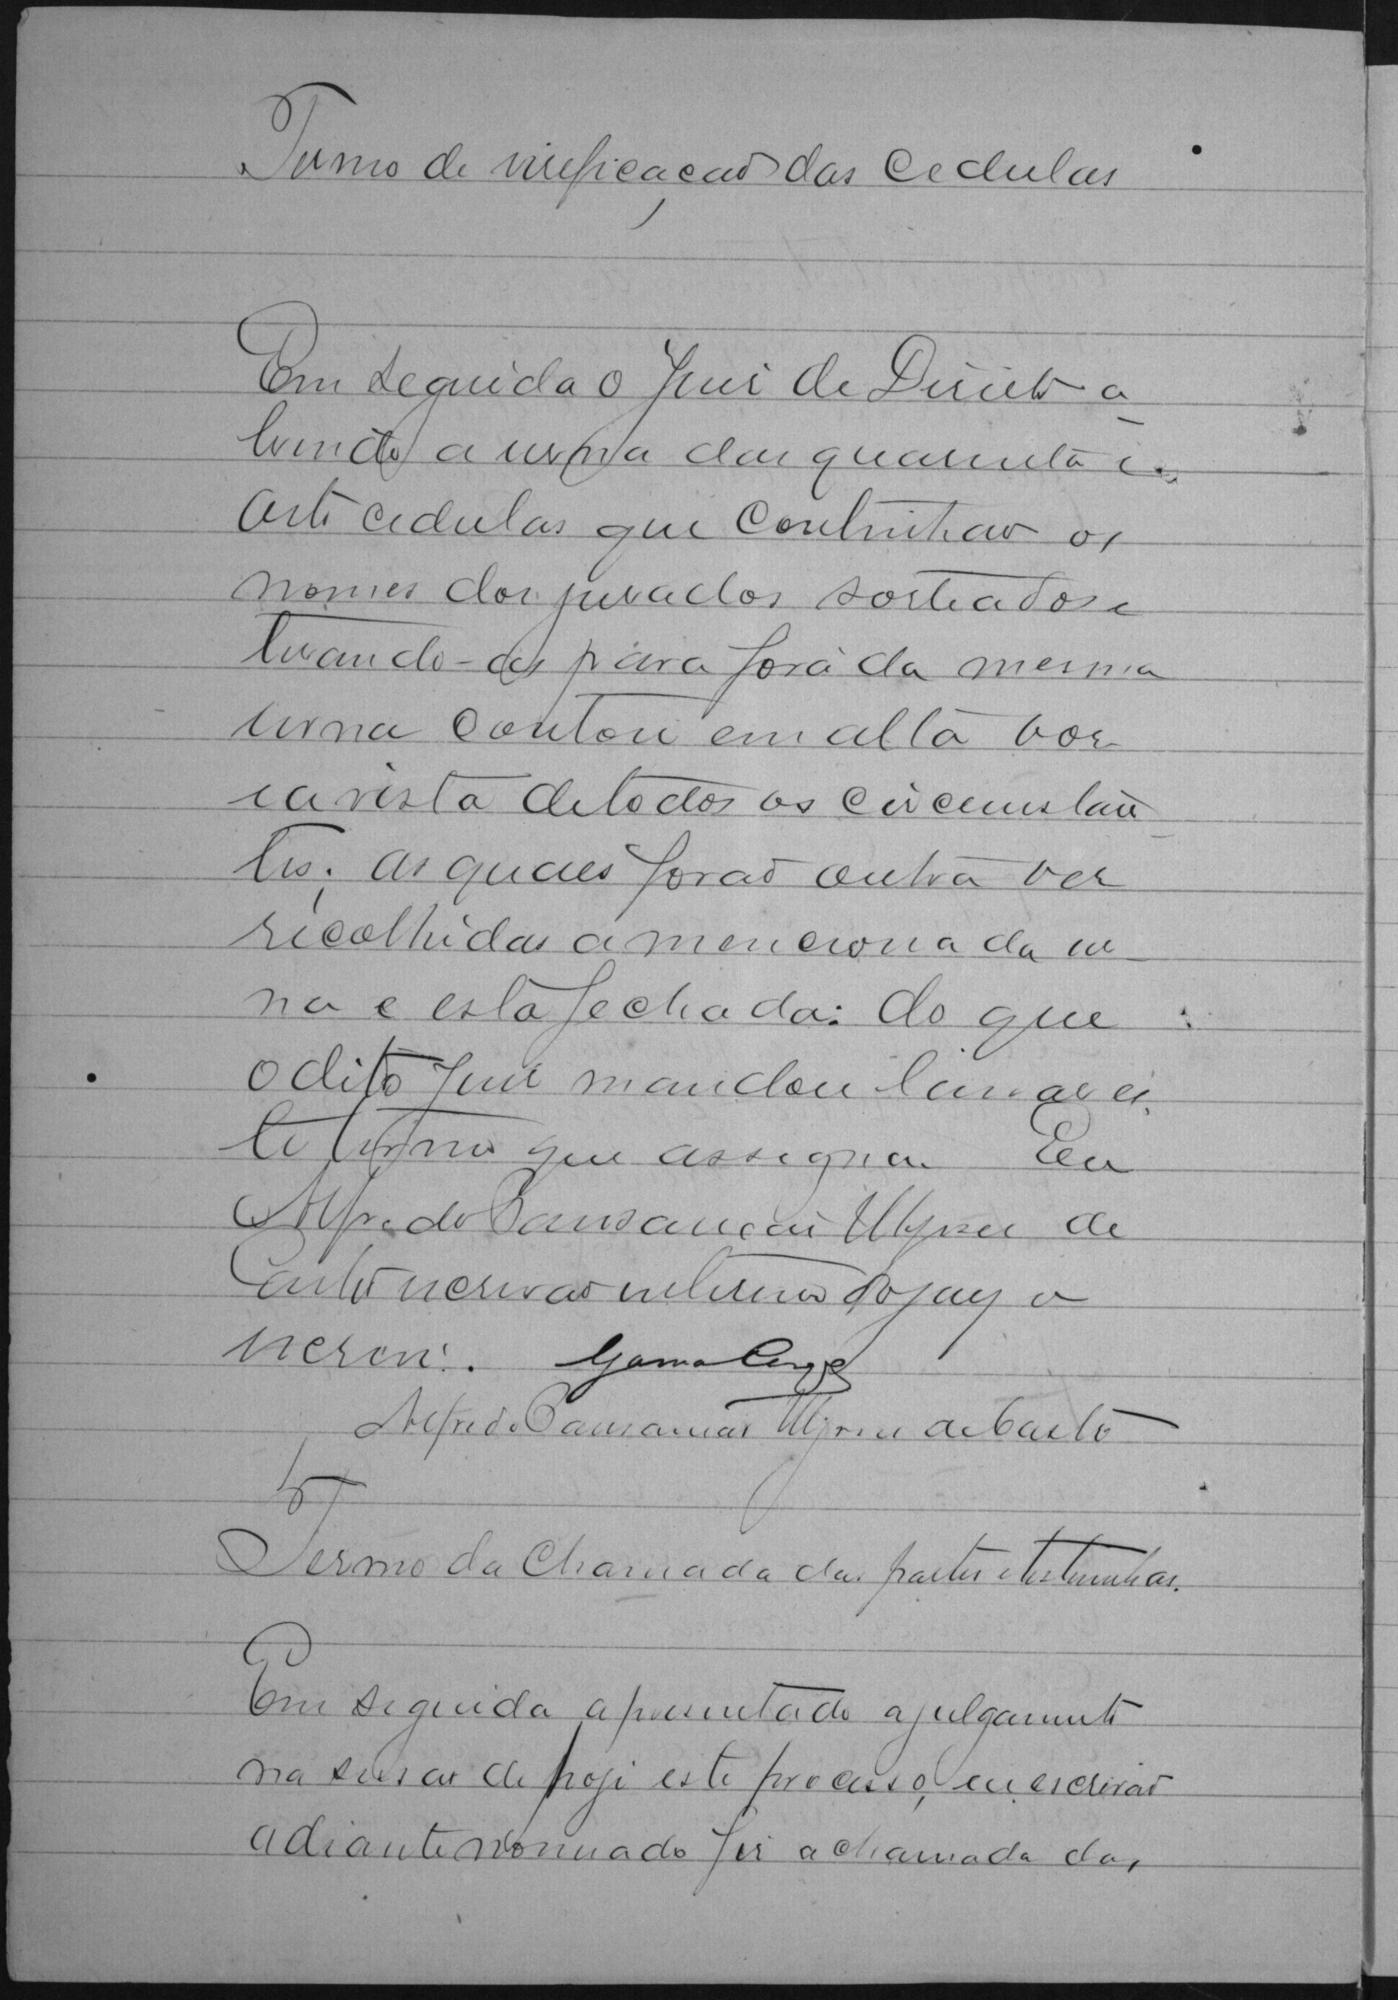 Termo de virificação das Cedulas
Em seguida o Juis de Direito a
brindo a urna das quarenta e
oito cedulas que continhão os
nomes dos jurados sorteados e
tirando-as para fora da mesma
urna contou em alta vos
e a vista de todos os circumstan
tes; as quaes forão outra ves
recolhidas a mencionada ur
na e esta fechada: do que
o dito Juis mandou lavrar es
te termo que assigna. Eu
Alfredo Cansanção Ulysses de
escrivão interino do jury o
escrevi.
Alfredo Cansanção Ulysses de
Termo da Chamada das partes e testemunhas.
Em seguida apresentado a julgamento
na sessão de hoje este processo, eu escrivão
adiante nomeado fis a chamada das